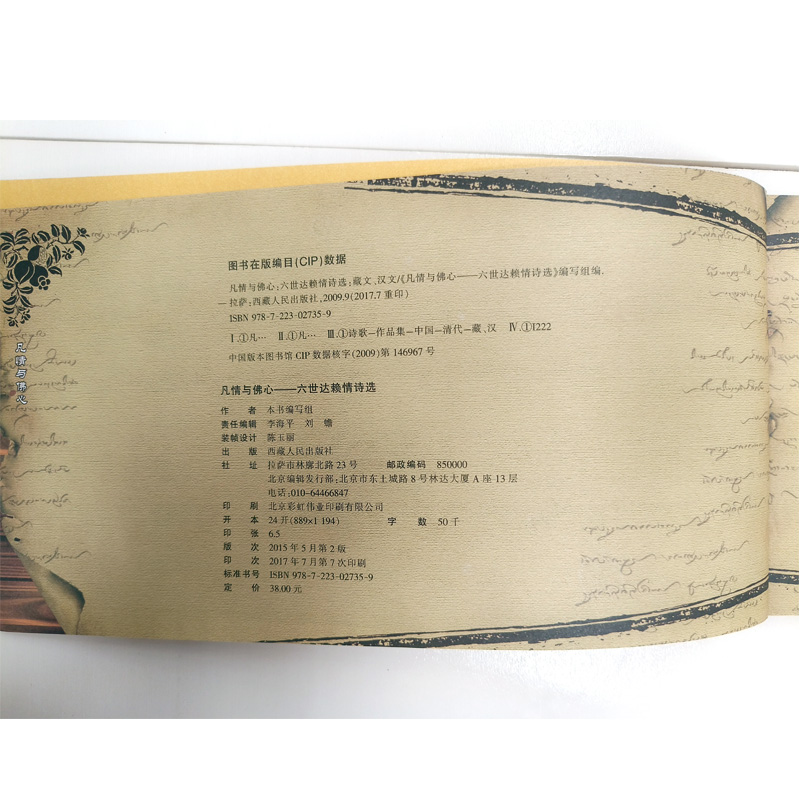 图书在版编目(CIP)数据
凡情与佛心:六世达赖情诗选:藏文、汉文/《凡情与佛心——六世达赖情诗选》编写组编.
—拉萨:西藏人民出版社,2009.9(2017.7重印)
ISBN 978-7-223-02735-9
Ⅰ.①凡… Ⅱ.①凡… Ⅲ.①诗歌—作品集—中国—清代—藏、汉 Ⅳ.①I222
中国版本图书馆CIP数据核字(2009)第146967号
凡情与佛心
凡情与佛心——六世达赖情诗选
作 者 本书编写组
责任编辑 李海平 刘 蟾
装帧设计 陈玉丽
出 版 西藏人民出版社
社 址 拉萨市林廓北路23号 邮政编码 850000
北京编辑发行部:北京市东土城路8号林达大厦A座-13层
电话:010-64466847
印 刷 北京彩虹伟业印刷有限公司
开 本 24开(889×1 194) 字 数 50千
印 张 6.5
版 次 2015年5月第2版
印 次 2017年7月第7次印刷
标准书号 ISBN 978-7-223-02735-9
定 价 38.00元